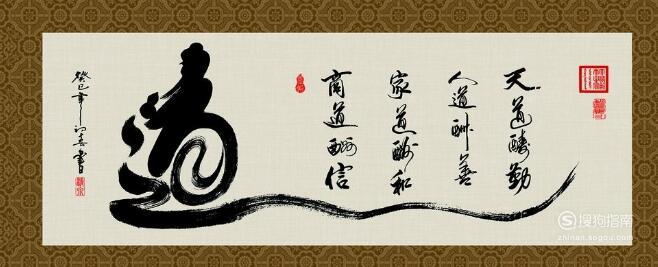 天道酬勤
人道酬善
家道酬和
商道酬信
道
癸巳年
書
搜狗指南
zhinan.sogou.com